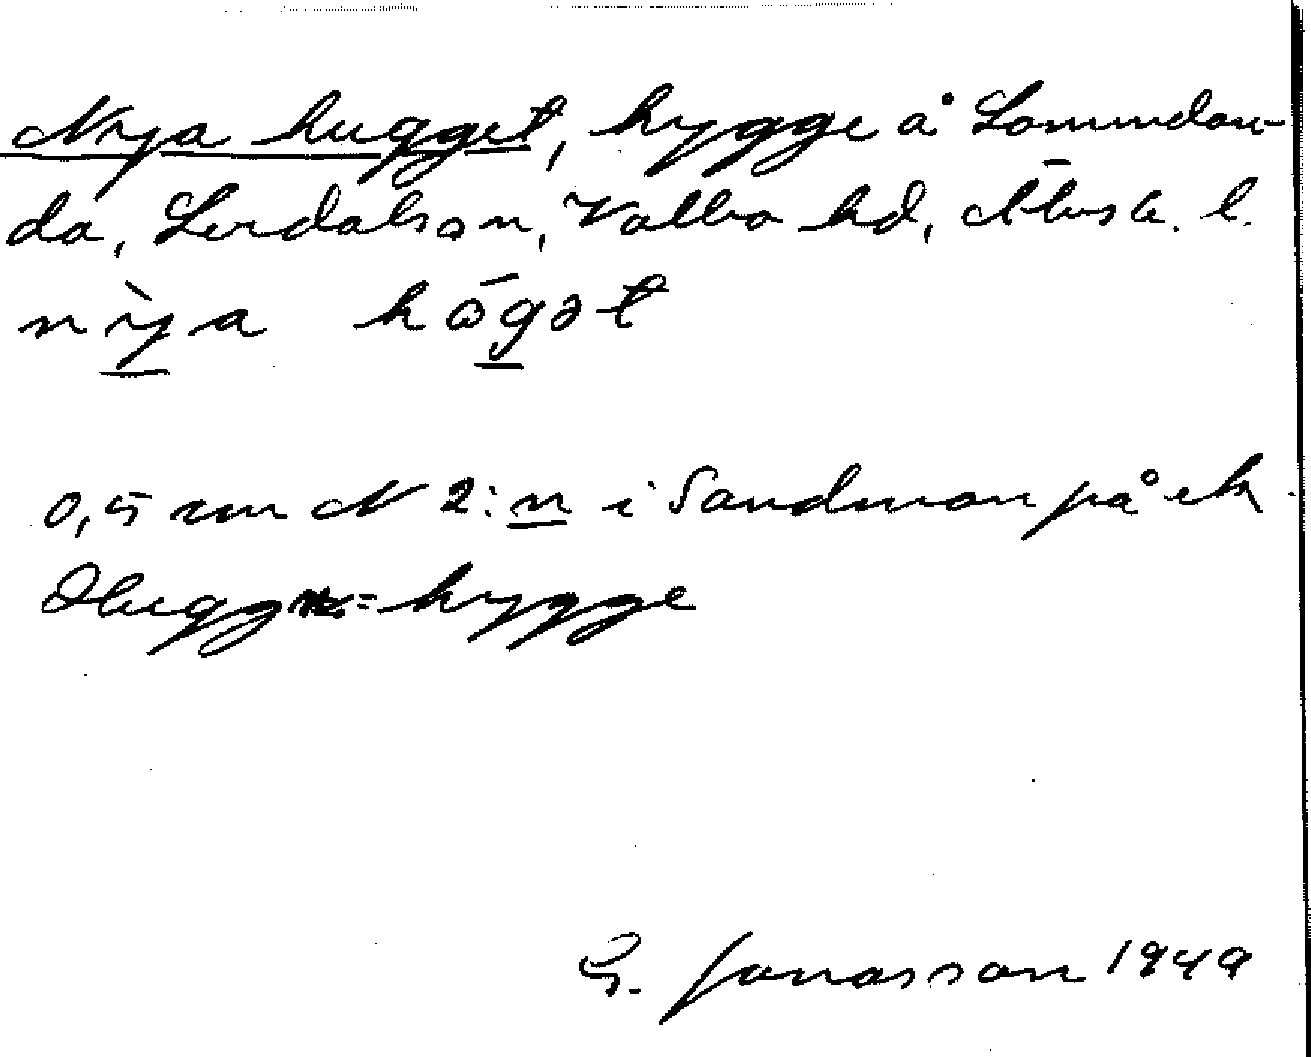 Nya hugget, hygge å Lommelan-
da, Lerdalson, Valbo hd, Älvsb. l.
nỳa hōgət
0,5 cm N 2:n i Sandmon på ek
Dhugg = hygge
G. Jonasson 1949